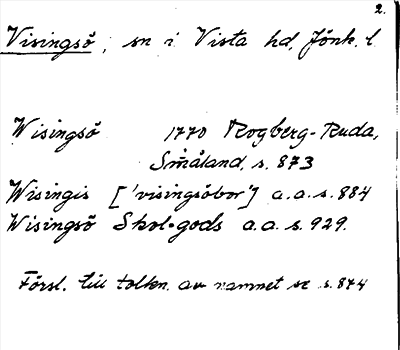 2.
Visingsö, sn i Vista hd, Jönk. l.
Wisingsö 1770 Rogberg-Ruda,
Småland, s. 873
Wisingis ['visingsöbor'] a.a.s. 884
Wisingsö Skol-gods a.a.s. 929.
Försl. till tolkn. av namnet se s. 874